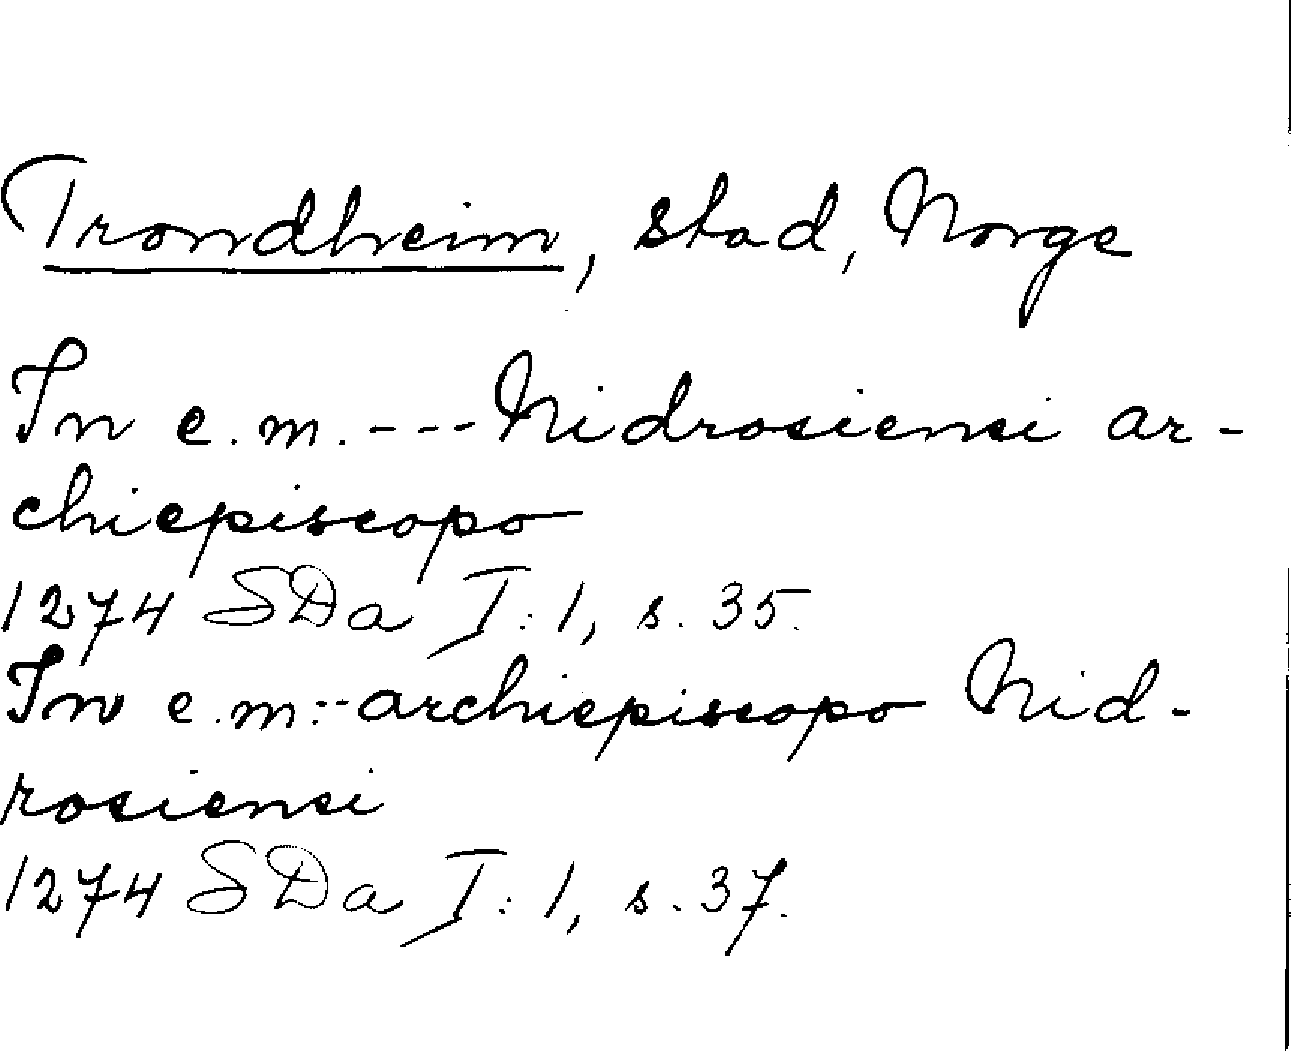 Trondheim, stad, Norge
In e.m. --- Nidrosiensi ar-
chiepiscopo
1274 SDa I:1, s. 35.
In e.m:- archiepiscopo Nid-
rosiensi
1274 SDa I:1, s. 37.